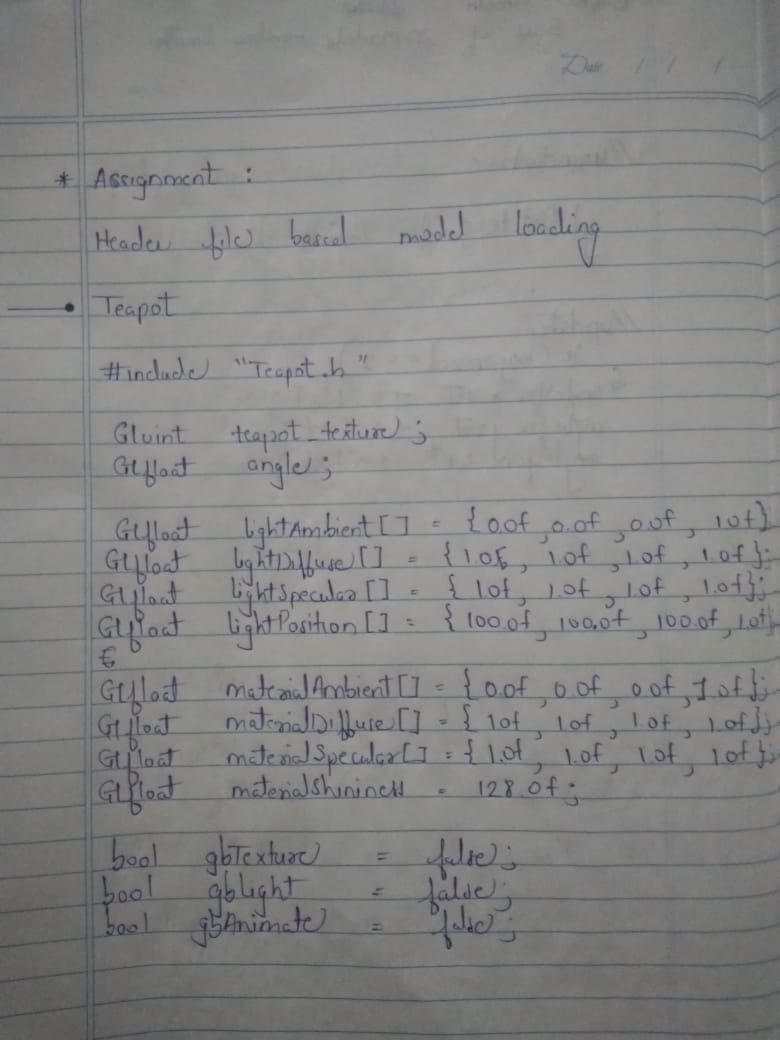 Date / / /
* Assignment :
Header file based model loading
Teapot
#include "Teapot.h"
GLuint teapot_texture;
GLfloat angle;
GLfloat lightAmbient[] = {0.0f, 0.0f, 0.0f, 1.0f}
GLfloat lghtDiffuse[] = {1.0f, 1.0f, 1.0f, 1.0f};
GLfloat lightSpecular[] = {1.0f, 1.0f, 1.0f, 1.0f};
GLfloat lightPosition[] = {100.0f, 100.0f, 100.0f, 1.0f}
GLfloat materialAmbient[] = {0.0f, 0.0f, 0.0f, 1.0f};
GLfloat materialDiffuse[] = {1.0f, 1.0f, 1.0f, 1.0f};
GLfloat materialSpecular[] = {1.0f, 1.0f, 1.0f, 1.0f};
GLfloat materialShininess = 128.0f;
bool gbTexture = false;
bool gbLight = false;
bool gbAnimate = false;